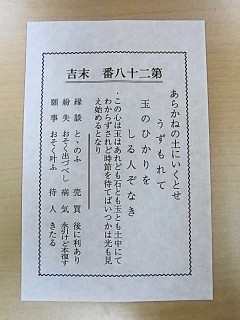 第二十八番　末吉
あらかねの土にいくとせ
うずもれて
玉のひかりを
しる人ぞなき
・この心は玉はあれども石とも玉とも土中にて
わからずされど時節を待てばいつかは光も見
え始めるとなり
縁談　とゝのふ　売買　後に利あり
紛失　おそく出づべし　病気　永引けど本復す
願事　おそく叶ふ　待人　きたる